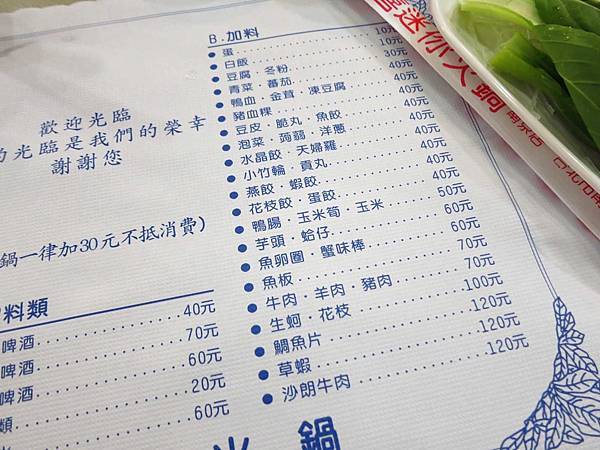 B.加料
●蛋 10元
●白飯 10元
●豆腐．冬粉 30元
●青菜．番茄 40元
●鴨血．金茸．凍豆腐 40元
●豬血粿 40元
●豆皮．脆丸．魚餃 40元
●泡菜．蒟蒻．洋蔥 40元
●水晶餃．天婦羅 40元
●小竹輪．貢丸 40元
●燕餃．蝦餃 40元
●花枝餃．蛋餃 40元
●鴨腸．玉米筍．玉米 50元
●芋頭．蛤仔 60元
●魚卵圈．蟹味棒 60元
●魚板 70元
●牛肉．羊肉．豬肉 70元
●生蚵．花枝 100元
●鯛魚片 120元
●草蝦 120元
●沙朗牛肉 120元
歡迎光臨
的光臨是我們的榮幸
謝謝您
鍋一律加30元不抵消費)
料類
啤酒 40元
啤酒 70元
啤酒 60元
20元
類 60元
鍋
迷你火鍋